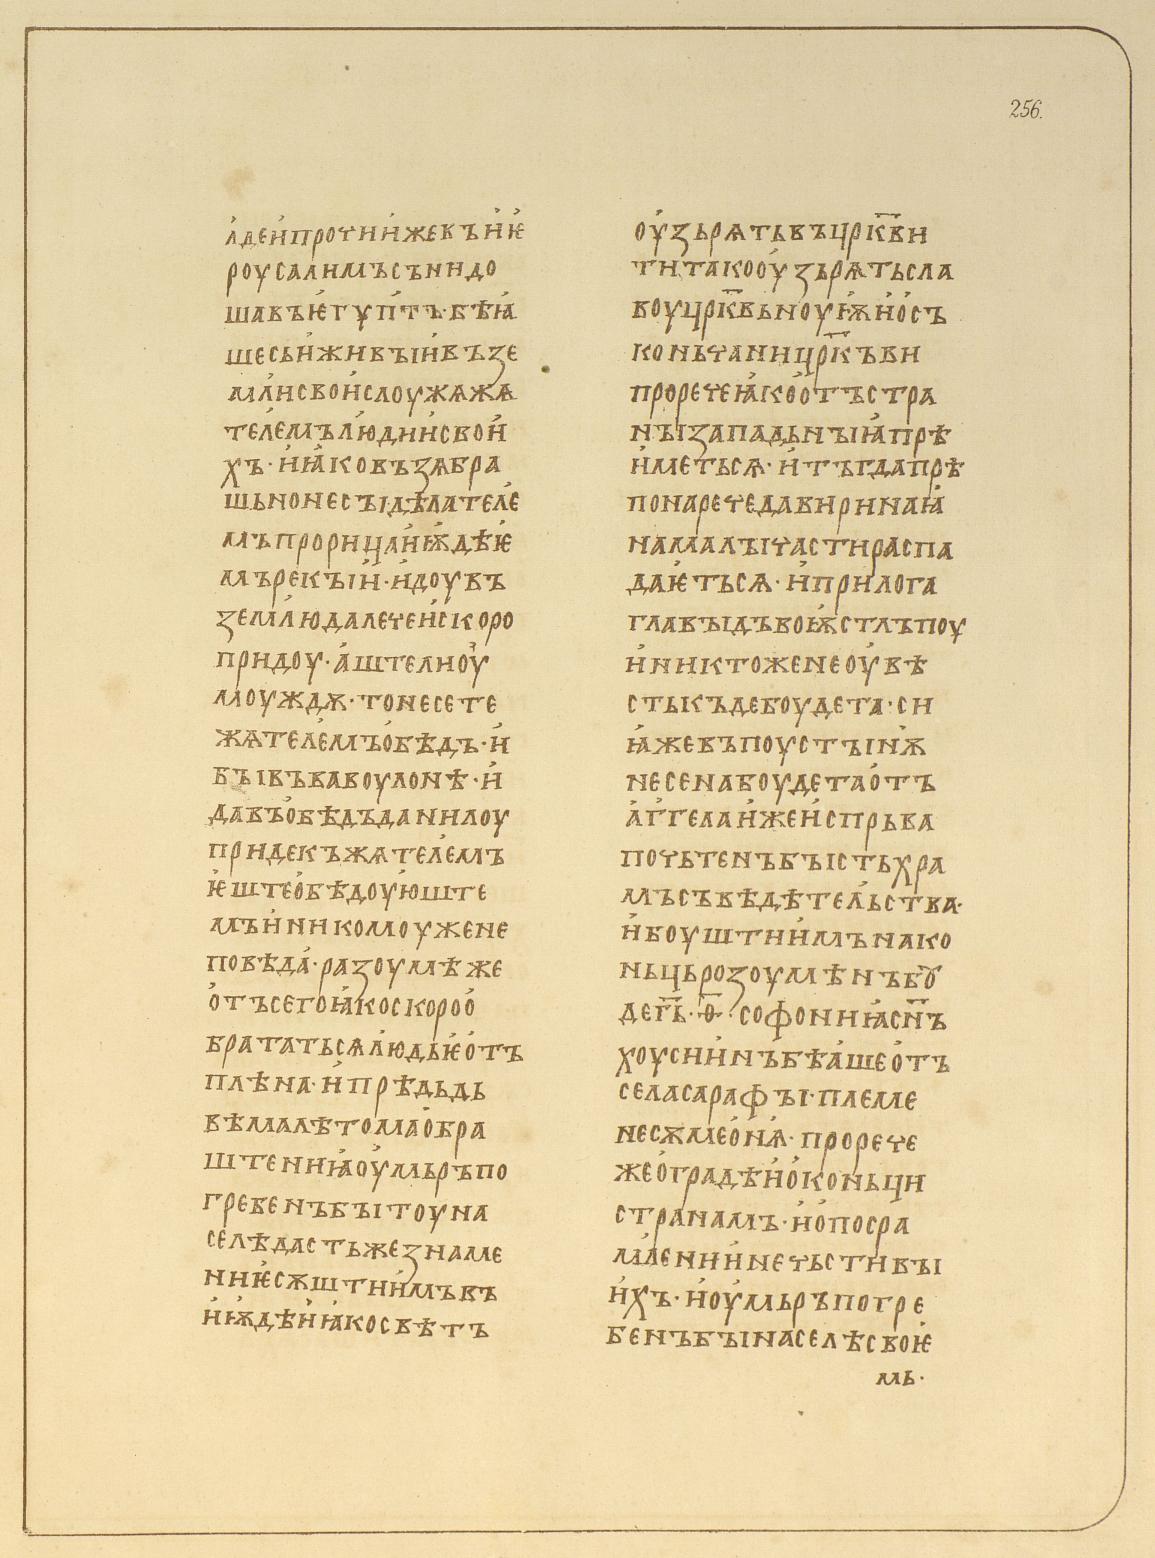 256.
лдеи҆прочии҆жевъи҆ѥ
роусалимъсънидо
шавъѥ҆гѵп҆тъ·бѣꙗ҆
шесьи҆живꙑи҆възе
мл҆исвои҆слоужѧжѧ
тел҆емъл҆юдии҆свои҆
хъ·и҆ꙗ҆ковъзѧбра
шьнонесꙑдѣлател҆е
мъпрорицаꙗ҆и҆ѭдѣѥ҆
мърекꙑи҆·и҆доувъ
земл҆юдалечеи҆скоро
придоу·а҆штелиоу҆
моуждѫ·тонесете
жѧтел҆емъо҆бѣдъ·и҆
бꙑвъвавоулонѣ·и҆
давъо҆бѣдъданилоу
придекъжѧтел҆емъ
ѥ҆штео҆бѣдоую҆ште
мъи҆никомоужене
повѣда҆·разоумѣже
о҆тъсегоꙗ҆коскороо҆
братитьсѧл҆юдьѥ҆о҆тъ
плѣна·и҆прѣдьдь
вѣмалѣтомао҆бра
штениꙗ҆оу҆мьръпо
гребенъбꙑтоуна
селѣдастьжезнаме
ниѥ҆сѫштии҆мъвъ
и҆ѭ҆дѣи҆ꙗ҆косвѣтъ
оу҆зьрѧтьвъцрк҃ви
титакооу҆зьрѧтьсла
воуцрк҃вьноуѭ҆и҆о҆съ
коньчаницрк҃ъви
проречеꙗ҆коо҆тъстра
нꙑзападьнꙑꙗ҆прѣ
и҆метьсѧ·и҆тъгдапрѣ
понаречедавиринаꙗ҆
намалꙑчастираспа
даѥ҆тьсѧ·и҆прилога
главꙑдъвоѭ҆стлъпоу
и҆никтоженеоу҆вѣ
стькъдебоудета·си
ꙗ҆жевъпоустꙑн҆ѫ
несенабоудетао҆тъ
а҆г҆гелаи҆жеи҆спрьва
почьтенъбꙑстьхра
мъсъвѣдѣтел҆ьства·
и҆боуштии҆мънако
ньцьрозоумѣнъбꙋ
дег҃ь·ѳ҃·софониꙗ҆сн҃ъ
хоусии҆нъбѣа҆шео҆тъ
селасарафꙑ·племе
несѫмео҆н҆ѧ·прорече
жео҆градѣи҆о҆коньци
странамъ·и҆о҆посра
мл҆ениинечьстивꙑ
и҆хъ·и҆оу҆мьръпогре
бенъбꙑнаселѣсвоѥ҆
мь·